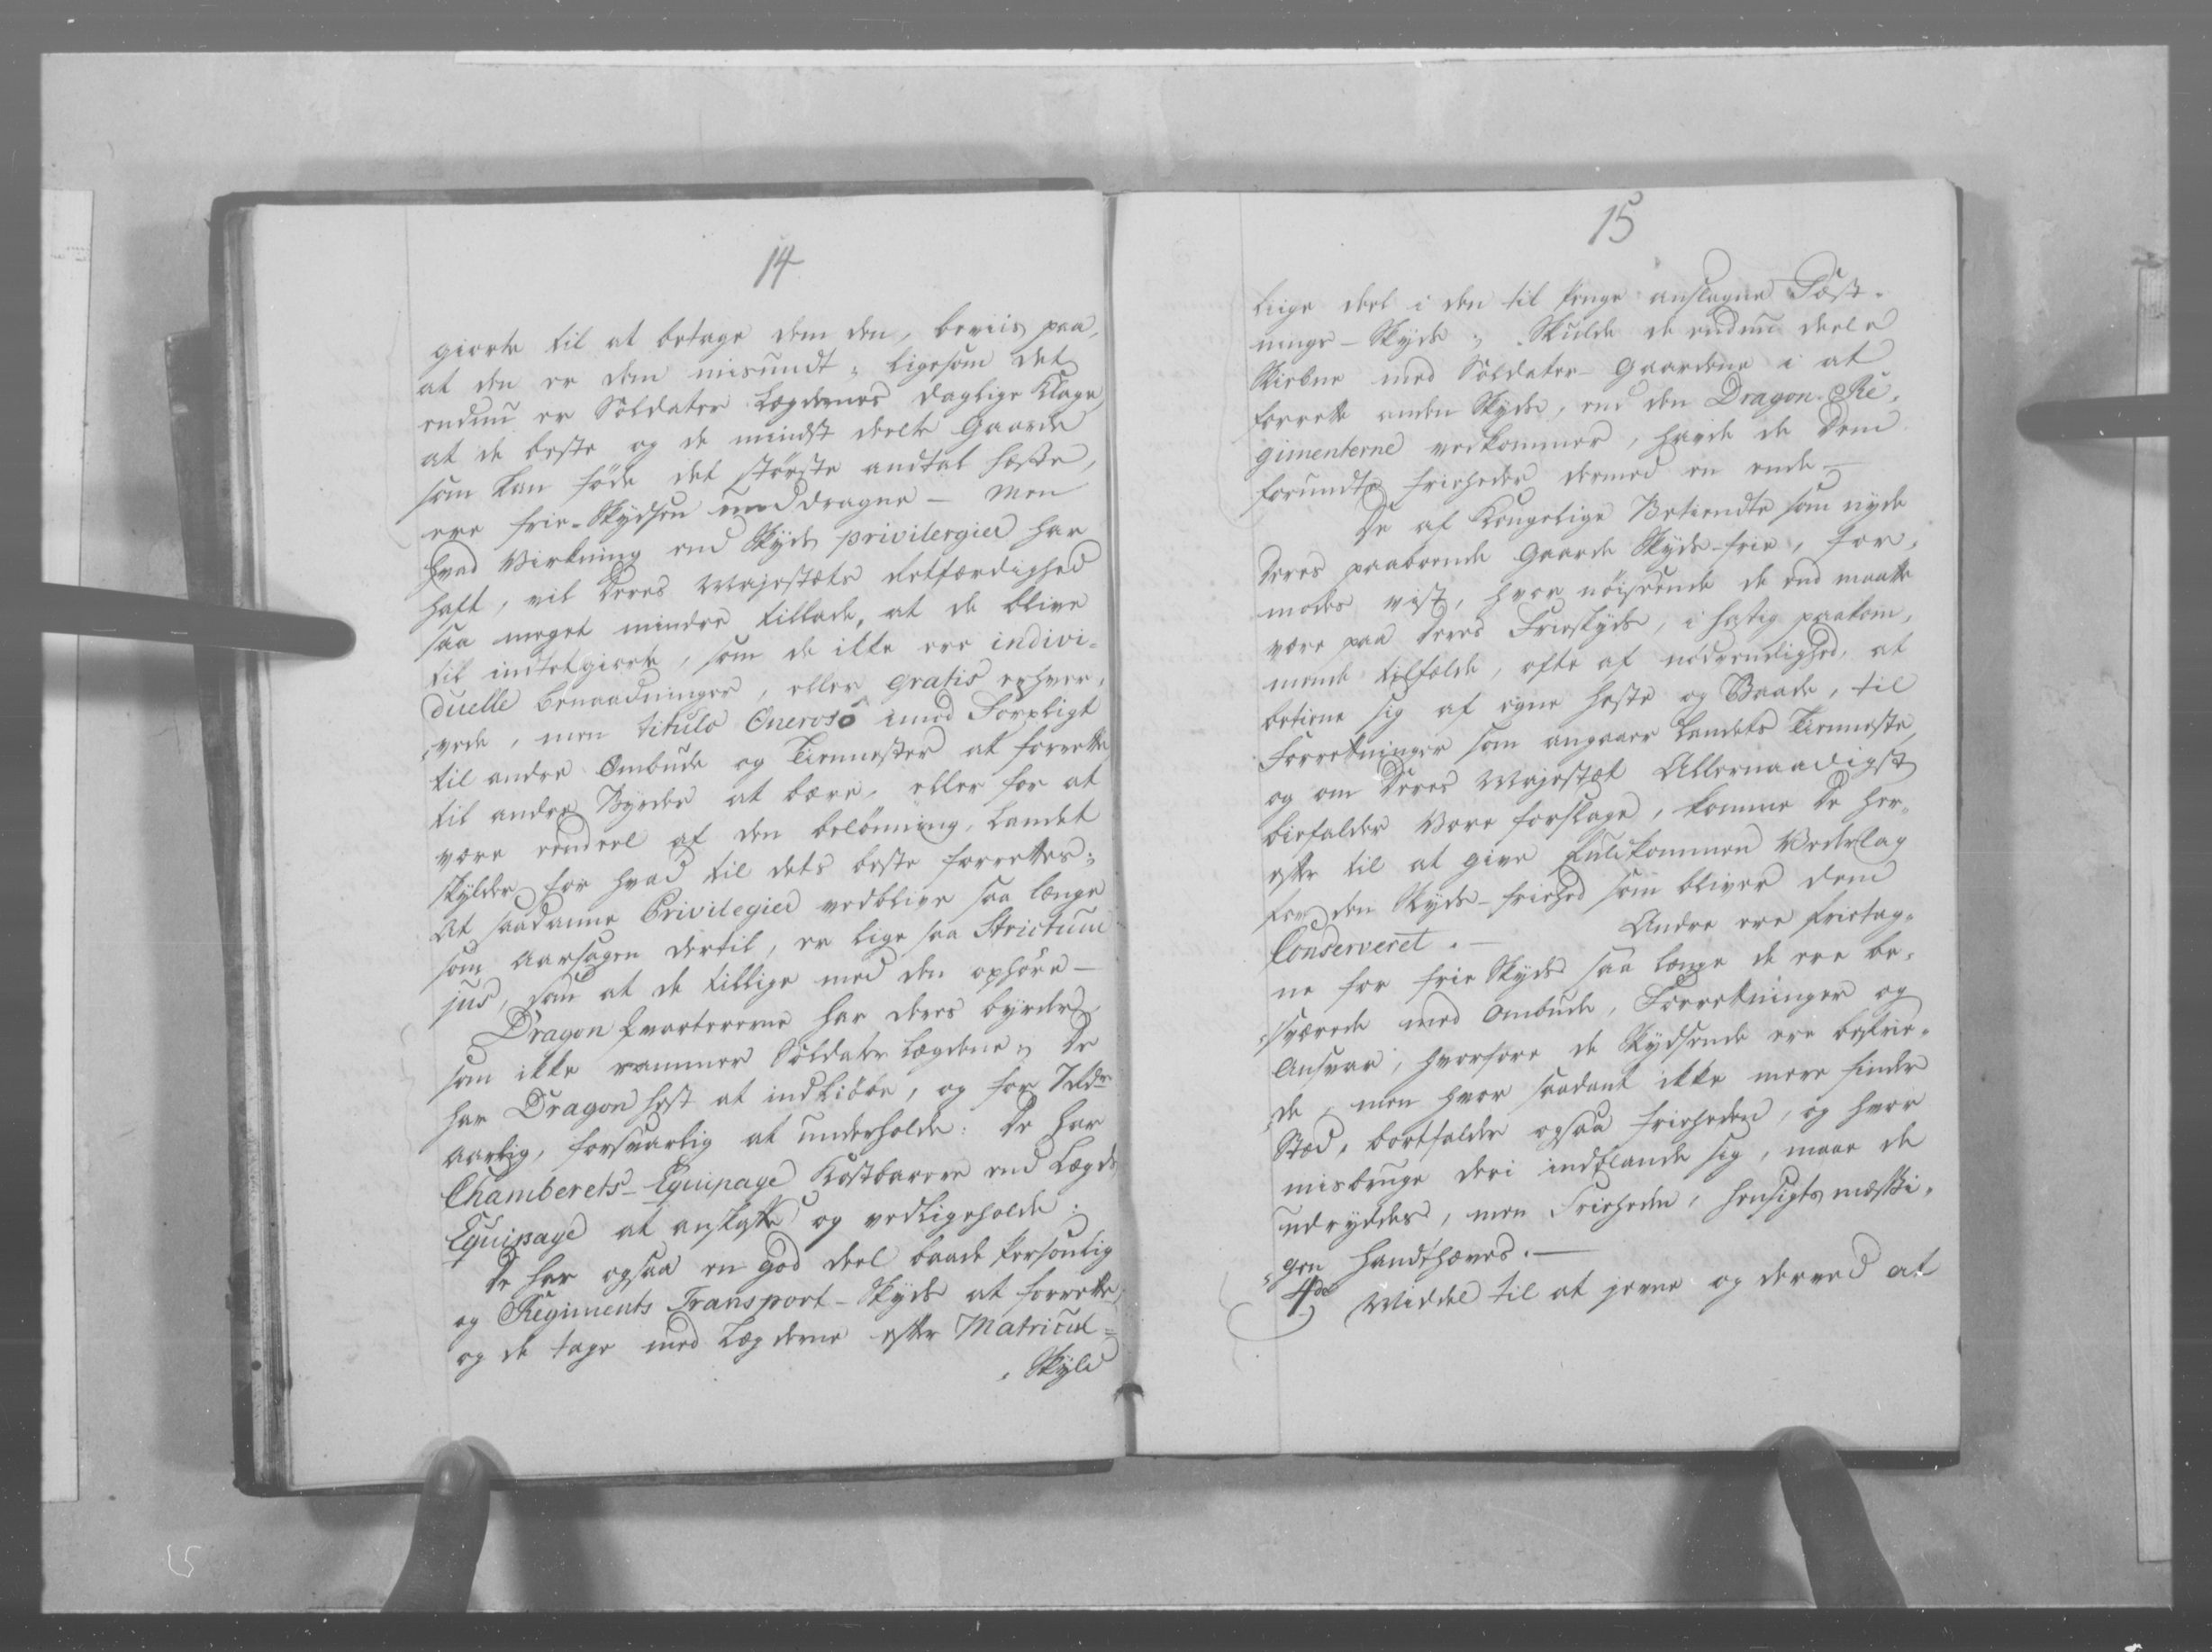 14
giorte til at betage dem den, beviis paa,
at den er dem misundt; ligesom det
endnu er Soldater Lægdernes daglige Klage,
at de beste og de mindst deelte Gaarde
som kan föde det störste andtal heste,
ere frie-Skydsen unddragne - Men
hvad Virkning end Skyds privilergier har
haft, vil Deres Majestæts Retfærdighed
saa meget mindre tillade, at de blive
til intetgiorte, som de ikke ere indivi-
duelle benaadninger, eller gratis erhver,
vede, men titulo Oneroso imod Forpligt
til andre Ombude og Tienester at forrette
til andre Byrder at bære, eller for at
være eendeel af den belönning, Landet
skylder for hvad til dets beste forrettes;
At saadanne Privilegier vedblive saa længe
som Aarsagen dertil, er lige saa Strictum
jus, som at de tillige med den ophöre -
Dragon Qvartererne har deres byrder
som ikke rammer Soldater Lægdene; De
har Dragon hest at indkiöbe, og for 7 Rdr
aarlig, forsvarlig at underholde: De har
Chamberets-Equipage Kostbarere end Lægds
Equipage at anskaffe og vedligeholde:
De har ogsaa en god deel baade Personlig
og Regiments Transport-Skyds at forrette,
og de tage med Lægderne efter Matricul=
Skyld
15
liige deel i den til Penge anslagne Fæst-
nings-Skyds; Skulde de endnu deele
Skiebne med Soldater-Gaardene i at
forrette anden Skyds, end den Dragon-Re,
gimenterne vedkommer, havde de dem
forundte friheder dermed en ende -
De af Kongelige Betiendte som nyde
Deres paaboende Gaarde Skyds-frie, for,
modes vist, hvor nöiseende de end maatte
være paa deres Frieskyds, i hastig paakom,
mende tilfælde, ofte af nödvendighed, at
betiene sig af egne heste og Baade, til
Forretninger som angaaer Landets Tienneste,
og om Deres Majestæt Allernaadigst
biefalder Vore forslage, komme De her-
efter til at give fuldkommen Vederlag
for den Skyds-friehed som bliver dem
Conserveret. - Andre ere frietag-
ne for frie Skyds saa længe de ere be-
sværede med Ombude, Forretninger og
Ansvar, hvorfore de Skydsende ere befrie-
de, men hvor saadant ikke mere finder
Sted, bortfalder ogsaa frieheden, og hvor
misbruge deri indblande sig, maae de
udryddes, men Frieheden, hensigtsmæssi-
gen handthæves. -
4de Middel til at jevne og derved at
15